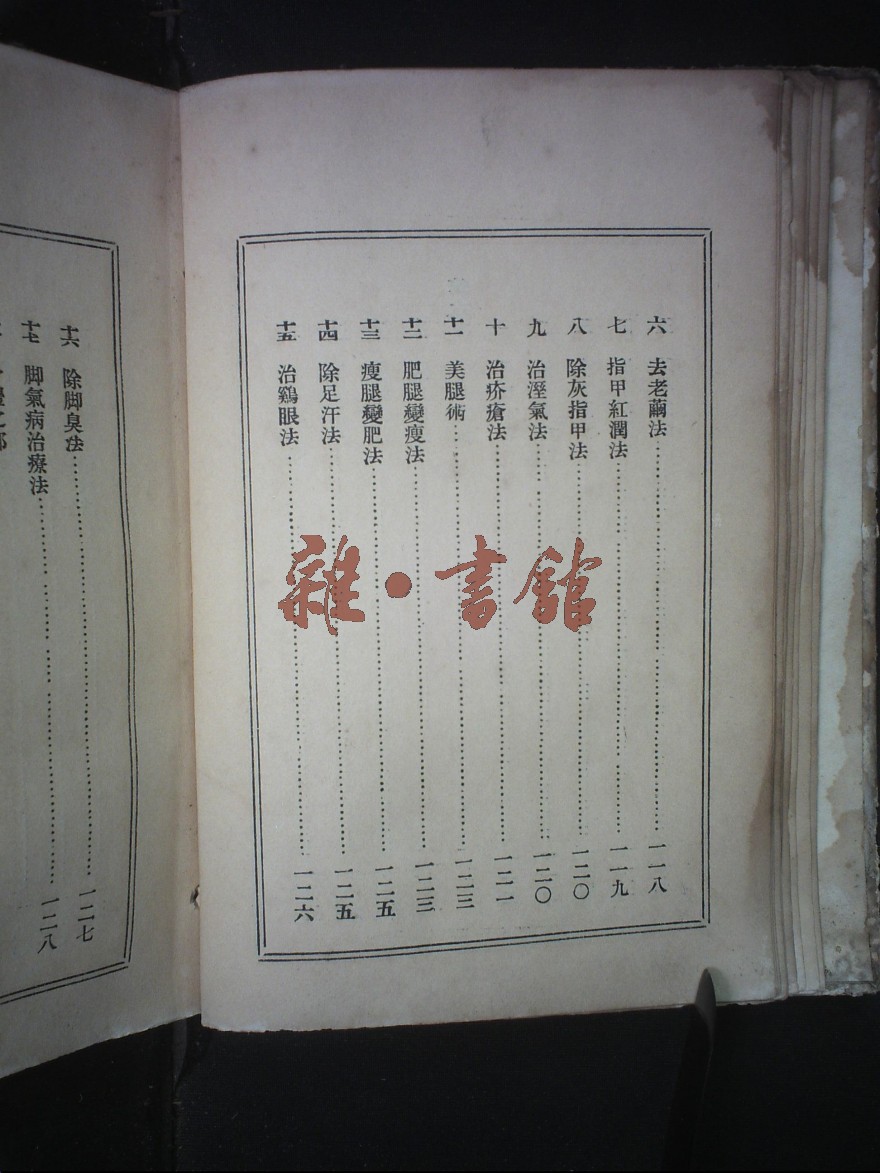 六 去老繭法 一一八
七 指甲紅潤法 一一九
八 除灰指甲法 一二〇
九 治溼氣法 一二〇
十 治疥瘡法 一二一
十一 美腿術 一二三
十二 肥腿變瘦法 一二三
十三 瘦腿變肥法 一二五
十四 除足汗法 一二五
十五 治鷄眼法 一二六
十六 除脚臭法 一二七
十七 脚氣病治療法 一二八
雜·書館